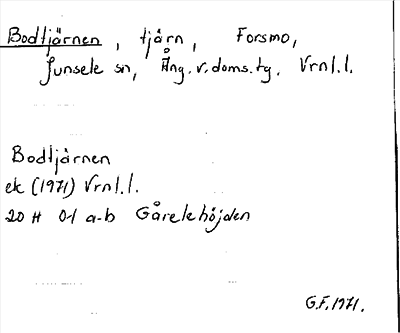 Bodtjärnen, tjärn, Forsmo,
Junsele sn, Ång. v. doms. tg. Vrnl.l.
Bodtjärnen
ek (1971) Vrnl.l.
20 H 0-1 a-b Gårelehöjden
G.F. 1971.